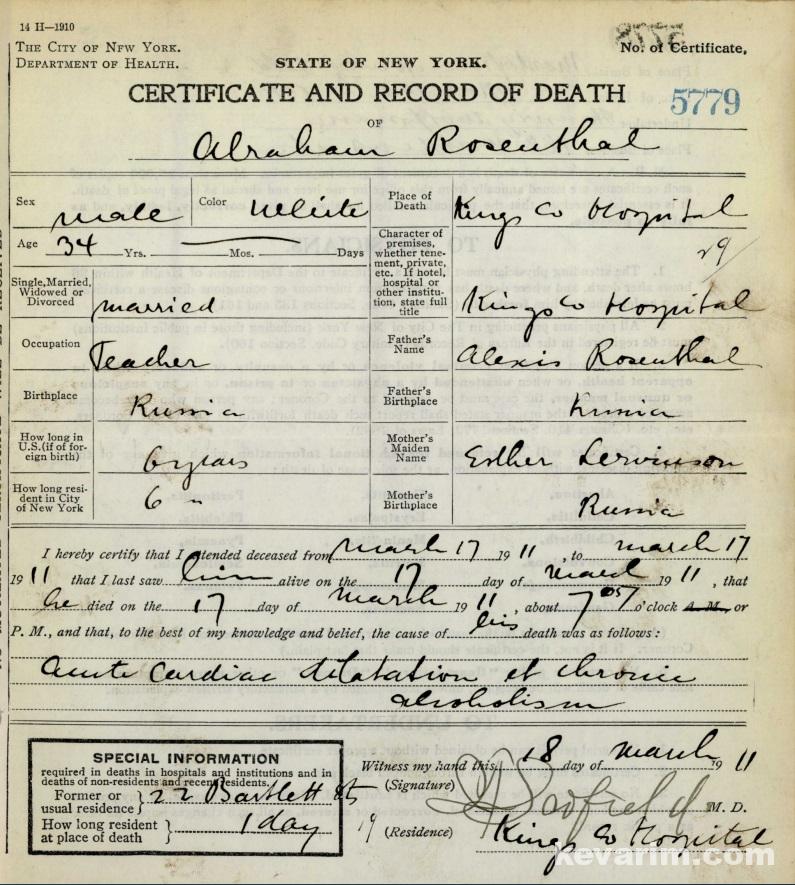 14 H—1910
THE CITY OF NEW YORK.
DEPARTMENT OF HEALTH.
STATE OF NEW YORK.
No. of Certificate,
CERTIFICATE AND RECORD OF DEATH
5779
OF
Abraham Rosenthal
Sex male Color White
Place of Death Kings Co Hospital
Age 34 Yrs. Mos. Days
Character of premises, whether tenement, private, etc. If hotel, hospital or other institution, state full title
29
Kings Co Hospital
Single, Married, Widowed or Divorced married
Occupation Teacher
Father's Name Alexis Rosenthal
Birthplace Russia
Father's Birthplace Russia
How long in U.S. (if of foreign birth) 6 years
Mother's Maiden Name Esther
How long resident in City of New York 6 "
Mother's Birthplace Russia
I hereby certify that I attended deceased from march 17 1911, to march 17
1911 that I last saw him alive on the 17 day of march 1911, that
he died on the 17 day of march 1911, about 7 05 o'clock A. M., or
P. M., and that, to the best of my knowledge and belief, the cause of his death was as follows:
acute cardiac dilatation et chronic
alcoholism
SPECIAL INFORMATION
required in deaths in hospitals and institutions and in
deaths of non-residents and recent residents.
Former or usual residence } 22 Bartlett St
How long resident at place of death } 1 day
Witness my hand this 18 day of march 1911
(Signature) M. D.
19 (Residence) Kings Co Hospital
kevarim.com